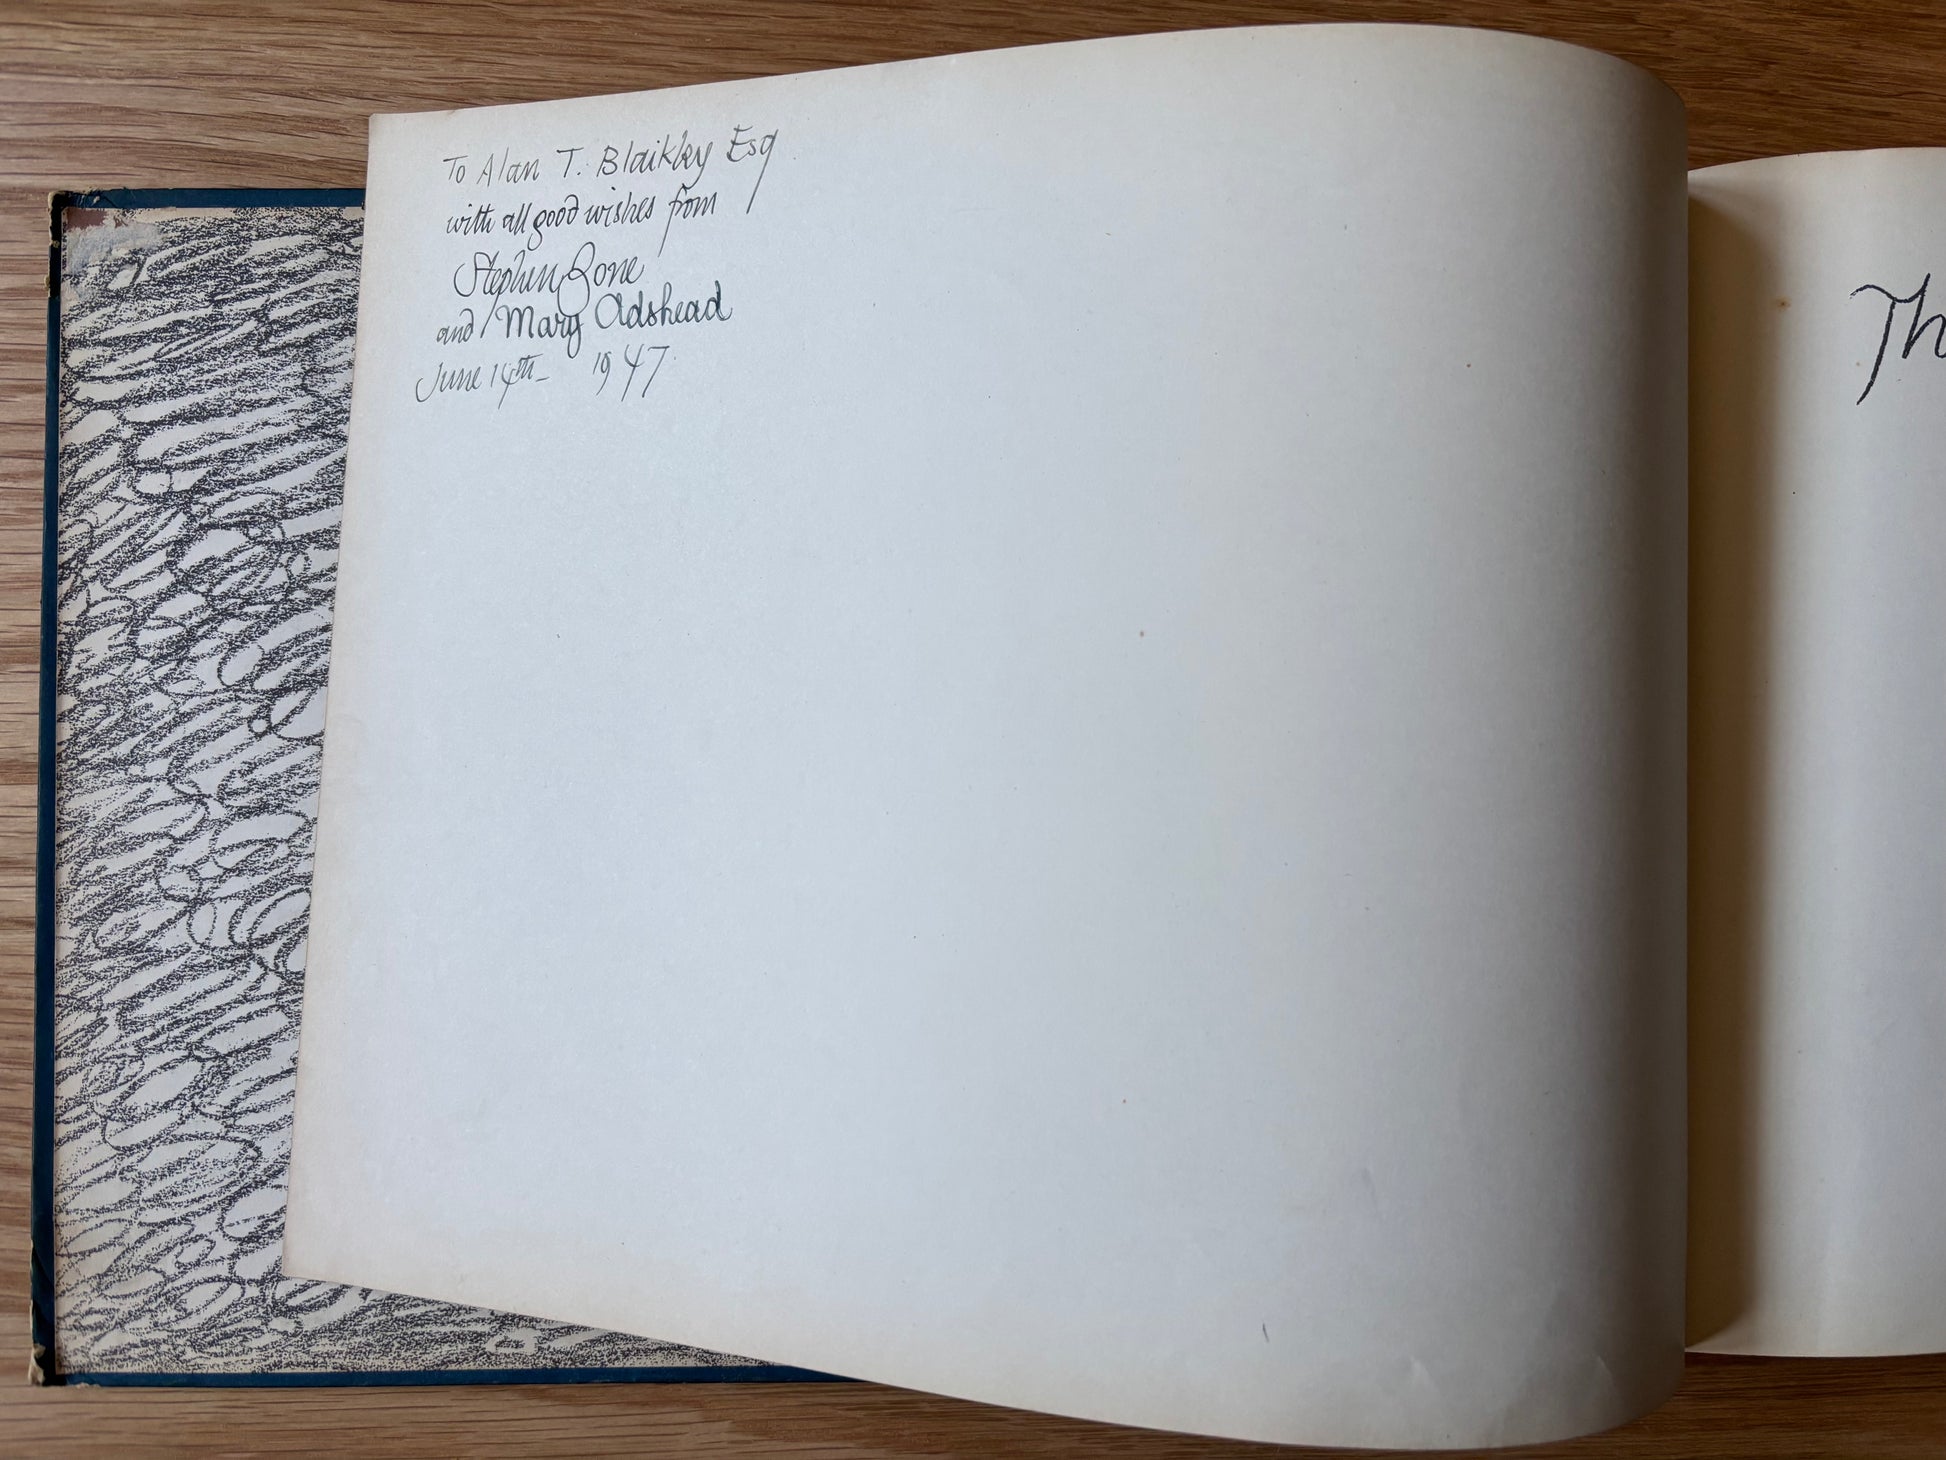 To Alan T. Blaikley Esq
with all good wishes from
Stephen Bone
and Mary Adshead
June 14th_ 1947.
Th